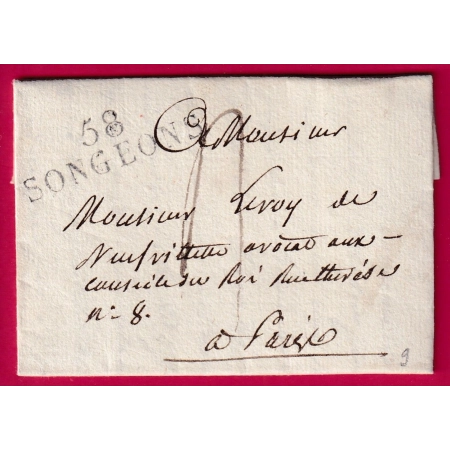 58
SONGEONS
A Monsieur
Monsieur Leroy de
Neufvillette avocat aux
conseils du Roi Rue thérèse
n° 8.
a Paris
9